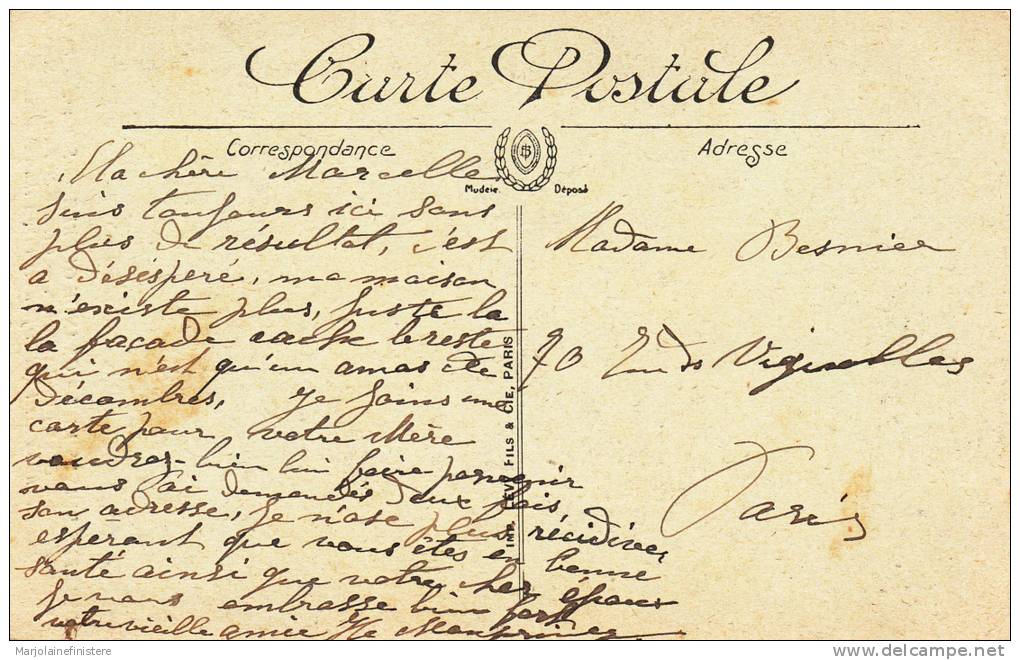 Carte Postale
Correspondance
Adresse
Mudeie. Déposé
Ma chère Marcelle
suis toujours ici sans
plus de résultat, c'est
a désésperé, ma maison
n'existe plus, juste la
la façade cache le reste
qui n'est qu'un amas de
décombres, Je joins une
carte pour votre Mère
voudrez-bien lui faire parvenir
vous ai demandés deux fois
son adresse, je n'ose plus récidiver
espérant que vous êtes en bonne
santé ainsi que votre cher époux
Je vous embrasse bien fort
votre vieille amie
Madame Besnier
70 Rue des Vignolles
Paris
IMP. LEVY FILS & CIE, PARIS
Marjolainefinistere
delcampe.net